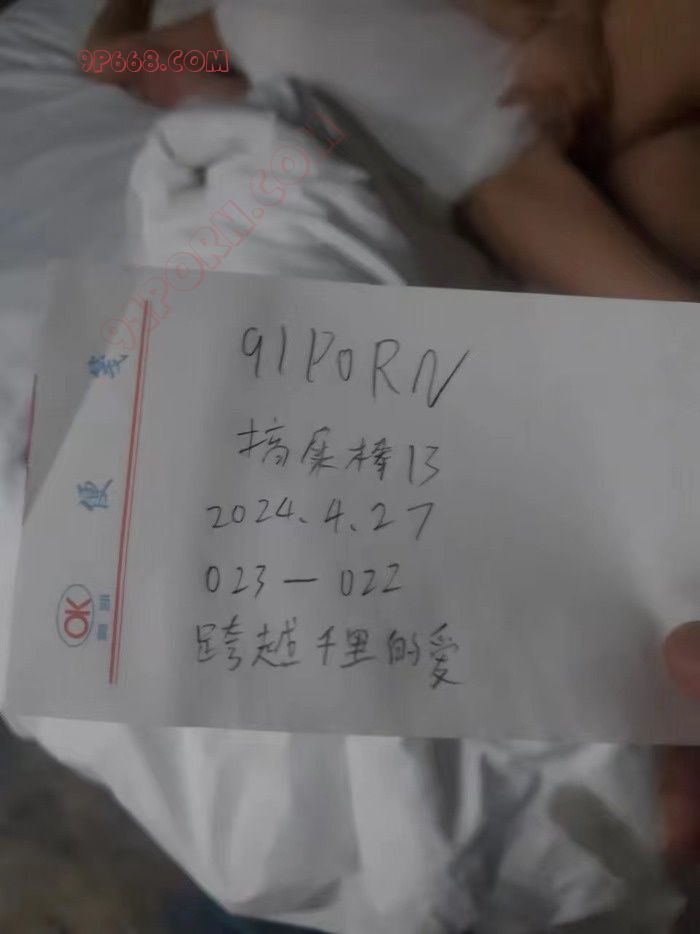 9P668.COM
91PORN.COM
91PORN
搞屎棒13
2024.4.27
023—022
跨越千里的爱
便笺
OK